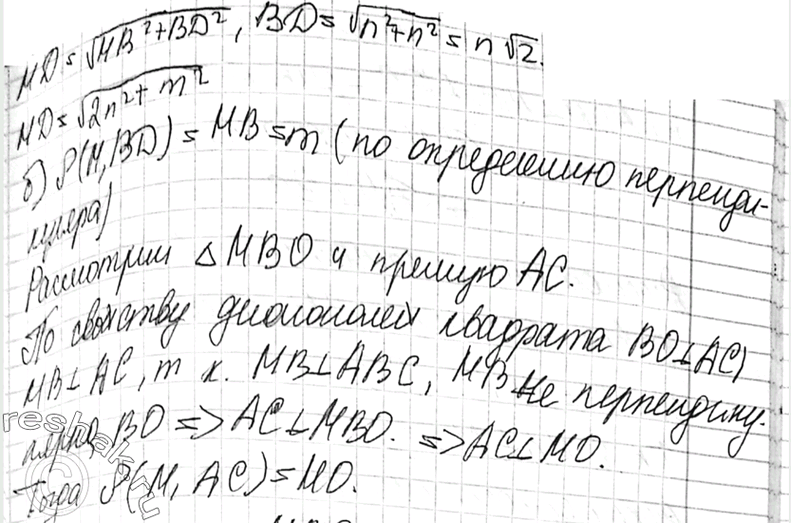 MD = √MB²+BD², BD = √n²+n² = n√2.
MD = √2n²+m²
б) ρ(M, BD) = MB = m (по определению перпенди-
куляра)
Рассмотрим △MBO и прямую AC.
По свойству диагоналей квадрата BO⊥AC,
MB⊥AC, т к. MB⊥ABC, MB не перпендику-
лярна BO => AC⊥MBO. => AC⊥MO.
Тогда ρ(M, AC) = MO.
reshak.ru